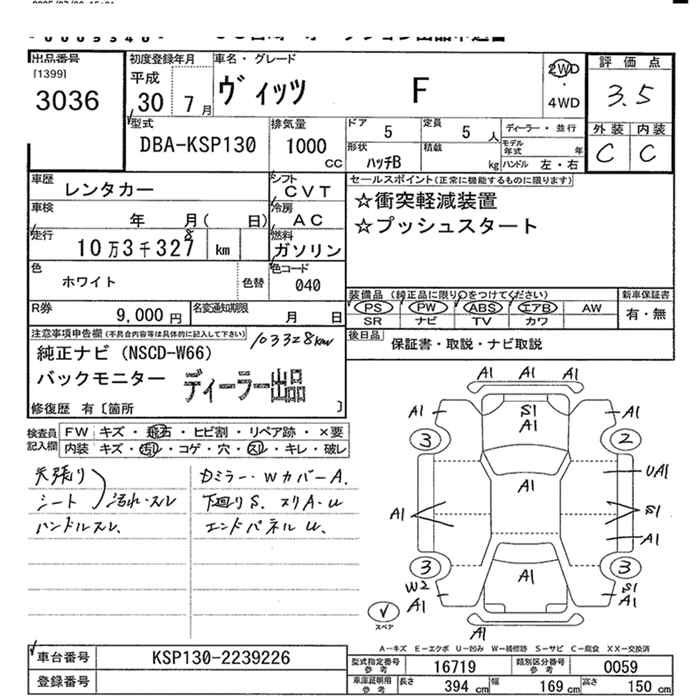 出品番号
[1399]
3036
初度登録年月
平成
30 7 月
車名・グレード
ヴィッツ F
2WD
・
4WD
評価点
3.5
外装 内装
C C
型式
DBA-KSP130
排気量
1000
CC
ドア 5
定員 5 人
ディーラー・並行
形状 ハッチB
積載 kg
モデル年式 年
ハンドル 左・右
車歴 レンタカー
シフト CVT
車検 年 月( 日)
冷房 AC
走行 10万3千327 km
8
燃料 ガソリン
色 ホワイト
色替
色コード 040
R券 9,000円
名変通知期限 月 日
セールスポイント(正常に機能するものに限ります)
☆衝突軽減装置
☆プッシュスタート
装備品 (純正品に限り○をつけてください)
PS PW ABS エアB AW
SR ナビ TV カワ
新車保証書
有・無
後日品 保証書・取説・ナビ取説
注意事項申告欄(不具合内容等は具体的に記入して下さい)
103328km
純正ナビ (NSCD-W66)
バックモニター ディーラー出品
修復歴 有〔箇所 〕
検査員記入欄
FW キズ・飛石・ヒビ割・リペア跡・×要
内装 キズ・汚れ・コゲ・穴・スレ・キレ・破レ
天張り
シート 汚れ・スレ
ハンドルスレ
Dミラー・Wカバー A.
下廻り S. スリA・U
エンドパネル U.
A1
A1 S1 A1
A1
3 2
A1
UA1
A1 S1
A1
3 3
W2 A1 S1
A1 A1
A1
スペア
A-キズ E-エクボ U-凹み W-補修跡 S-サビ C-腐食 XX-交換済
車台番号 KSP130-2239226
登録番号
型式指定番号 参考 16719
類別区分番号 参考 0059
車庫証明用 参考 長さ 394 cm 幅 169 cm 高さ 150 cm